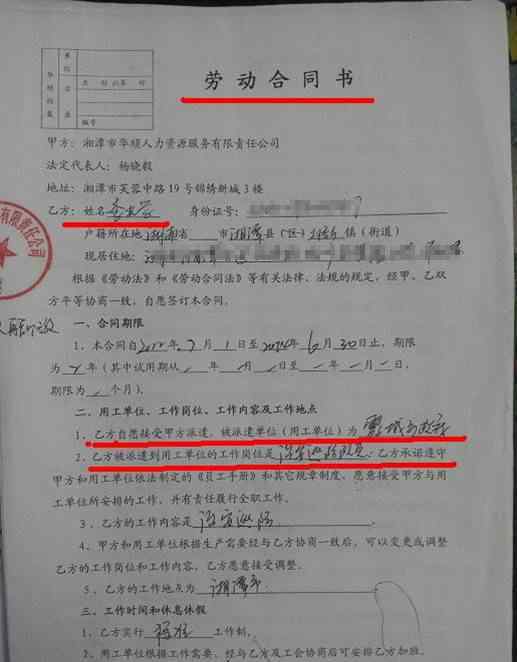 劳动合同书
编号
甲方：湘潭市华硕人力资源服务有限责任公司
法定代表人：杨晓毅
地址：湘潭市芙蓉中路19号锦绣新城3楼
乙方：姓名 身份证号：
户籍所在地 湖南省 市湘潭县（区） 镇（街道）
现居住地：
根据《劳动法》和《劳动合同法》等有关法律、法规的规定，经甲、乙双
方平等协商一致，自愿签订本合同。
一、合同期限
1、本合同自 年7月1日至 年6月30日止，期限
为 年（其中试用期从 年 月 日至 年 月 日，
期限为 个月）。
二、用工单位、工作岗位、工作内容及工作地点
1、乙方自愿接受甲方派遣，被派遣单位（用工单位）为
2、乙方被派遣到用工单位的工作岗位是治安巡防队员；乙方承诺遵守
甲方和用工单位依法制定的《员工手册》和其它规章制度，愿意接受甲方与用
工单位所安排的工作，并有责任履行全职工作。
3、乙方的工作内容是治安巡防
4、甲方和用工单位根据生产需要经与乙方协商一致后，可以变更或调整
乙方的工作岗位和工作内容，乙方愿意接受调整。
5、乙方的工作地点为 湘潭市
三、工作时间和休息休假
1、乙方实行 工作制。
2、用工单位根据工作需要，经与乙方及工会协商后可安排乙方加班。
有限责任公司